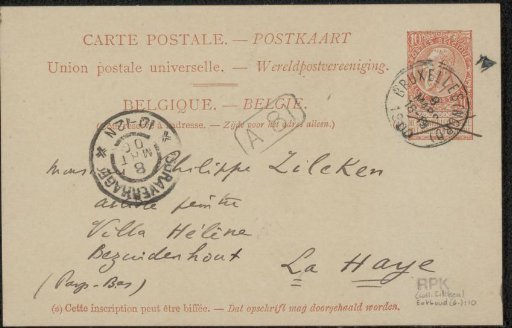 CARTE POSTALE. — POSTKAART
Union postale universelle. — Wereldpostvereeniging.
BELGIQUE. — BELGIË.
à l'adresse. — Zijde voor het adres alleen.)
BRUXELLES (NORD)
1900
'SGRAVENHAGE
10-12 N
8
MRT
00
Philippe Zilcken
peintre
Villa Hélène
Bezuidenhout
(Pays-Bas)
La Haye
(*) Cette inscription peut être biffée. — Dat opschrift mag doorgehaald worden.
RPK
(coll. Zilcken)